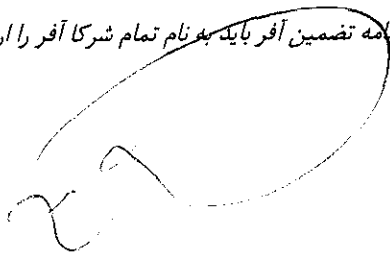 امه تضمین آفر باید به نام تمام شرکا آفر را ار